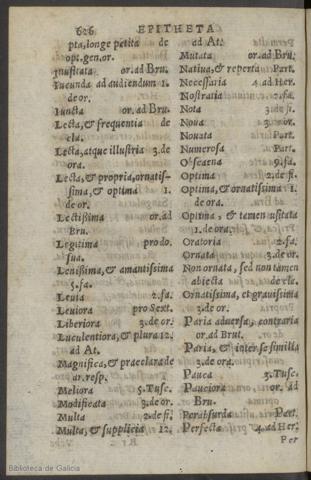 626 EPITHETA
pta, longe petita de
opt. gen. or.
Inusitata or. ad Bru.
Iucunda ad audiendum 1.
de or.
Iuncta or. ad Bru.
Lecta, & frequentia de
cla.
Lecta, atque illustria 3. de
ora.
Lecta, & propria, ornatis-
sima, & optima 1.
de or.
Lectißima or. ad
Bru.
Legitima pro do.
sua.
Lenißima, & amantissima
5. fa.
Leuia 2. fa.
Leuiora pro Sext.
Liberiora 3. de or.
Luculentiora, & plura 12.
ad At.
Magnifica, & præclara de
ar. resp.
Meliora 5. Tusc.
Modificata 3. de or.
Multa 2. de fi.
Multa, & supplicia 12.
ad At.
Mutata or. ad Bru.
Natiua, & reperta Part.
Necessaria 4. ad Her.
Nostratia 2. fa.
Nota 3. de fi.
Noua 3. or.
Nouata Part.
Numerosa Part.
Obscæna 9. fa.
Optima 2. de fi.
Optima, & ornatissima 1.
de ora.
Optima, & tamen usitata
1. de ora.
Oratoria 2. fa.
Ornata 3. de or.
Non ornata, sed non tamen
abiecta de cla.
Ornatissima, et grauissima
3. de or.
Paria aduersa, contraria
or. ad Brut.
Paria, & inter se similia
3. de ora.
Pauca 3. Tusc.
Pauciora or. ad
Bru.
Perabsurda Part.
Perfecta 4. ad Her.
Per
Biblioteca de Galicia